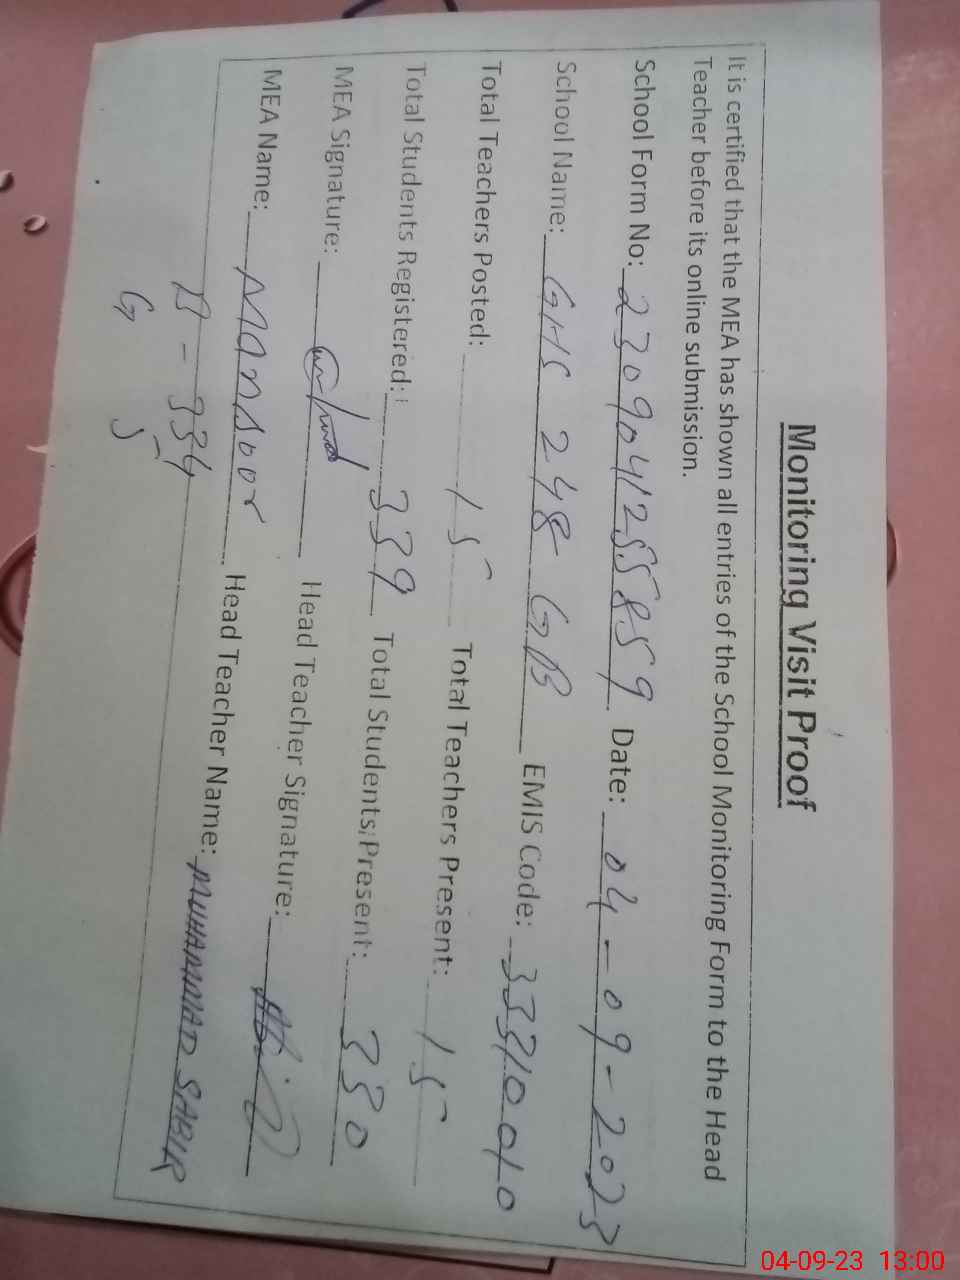 Monitoring Visit Proof
It is certified that the MEA has shown all entries of the School Monitoring Form to the Head
Teacher before its online submission.
School Form No: 2309041255859 Date: 04-09-2023
School Name: GHS 248 GB EMIS Code: 33310010
Total Teachers Posted: 15 Total Teachers Present: 15
Total Students Registered: 339 Total Students Present: 330
MEA Signature: Head Teacher Signature:
MEA Name: Mansoor Head Teacher Name: MUHAMMAD SABIR
04-09-23 13:00